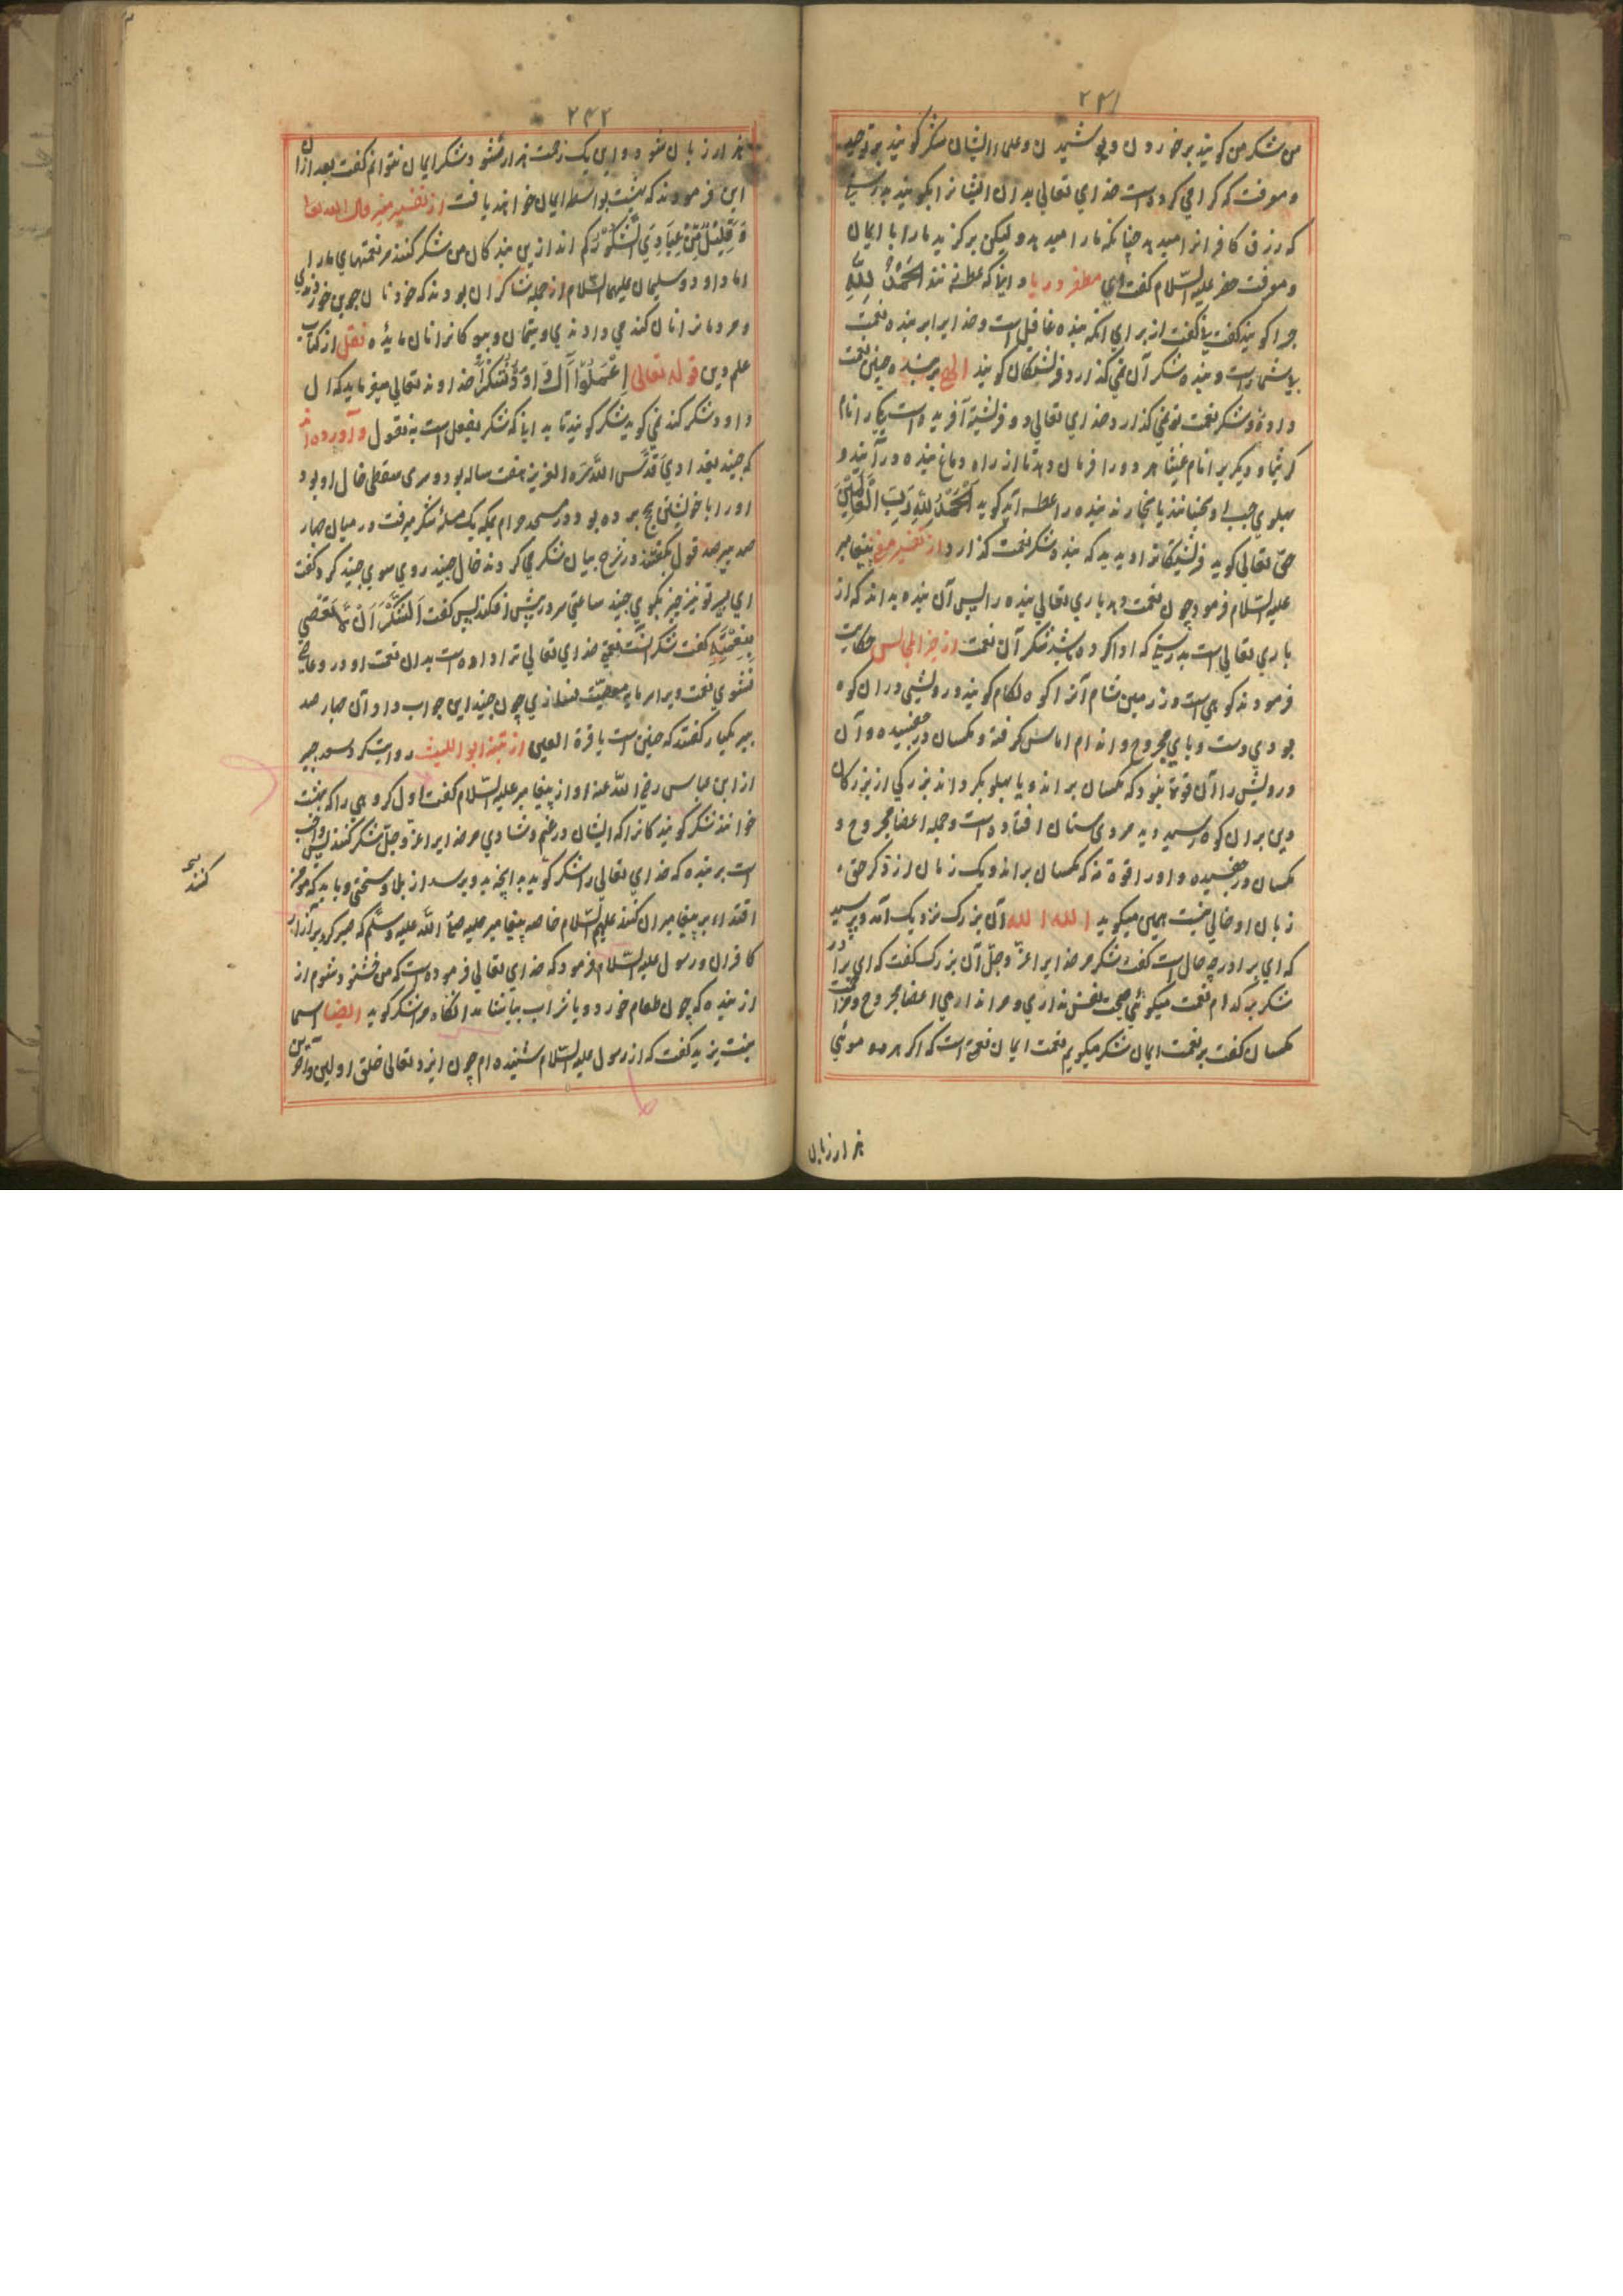 ۲۴۱
من شکر من کویند بر خوردن و پوشیدن و علماء ایشان شکر کویند بر توحید
و معرفت که کرامی کرده است خدای تعالی بدان ایشانرا بکویند بدرستی
که رزق کافرانرا میدهد چنانکه ما را میدهد ولیکن برکزید ما را با ایمان
و معرفت خضر علیه السلام کفت ای در یا و آنانکه عطسه زنند اَلْحَمْدُ لِلّٰهِ
چرا کویند کفت کفت از برای آنکه بنده غافل است و خدایرا بر بنده نعمت
بی شمار است و بنده شکر آن نمی کذارد فرشتکان کویند الهی بر بنده چنین نعمت
داده و شکر نعمت تو نمی کذارد خدای تعالی دو فرشته آفریده است یکی را نام
و دیکر را نام هر دو را فرمان دهد تا از راه دماغ بنده درآیند و
پهلوی چپ او بنده را عطسه آید کوید اَلْحَمْدُ لِلّٰهِ رَبِّ الْعَالَمِیْنَ
حق تعالی کوید فرشتکانرا دیدید که بنده شکر نعمت کذارد از تفسیر پیغامبر
علیه السلام فرمود چون نعمت دهد باری تعالی بنده را پس آن بنده بداند که از
باری تعالی است بدرستی که ادا کرده باشد شکر آن نعمت از المجالس حکایت
فرمودند کوهی است در زمین شام آنرا کوه لکام کویند درویشی در آن کوه
بودی دست و پای مجروح و اندام اماس کرفته و مکسان در چفسیده و آن
درویش را آن قوة نبود که مکسان براند و یا پهلو بکرداند بزرکی از بزرکان
دین بران کوه رسید دید مردی ستان افتاده است و جمله اعضا مجروح و
مکسان در چفسیده و او را قوة نه که مکسان براند و یک زمان از ذکر حق
زبان او خالی نیست همین میکوید الله الله آن بزرک نزدیک آمد و پرسید
که ای برادر چه حال است کفت شکر مر خدایرا عزّ و جلّ آن بزرک کفت که ای برادر
شکر بکدام نعمت میکوئی صحت نفس نداری و اندامهای اعضا مجروح و
مکسان کفت بر نعمت ایمان شکر میکویم نعمت ایمان نعمتی است که اکر هر موئی
هزار زبان
۲۴۲
هزار زبان شود و این یک زحمت هزار شود شکر ایمان نتوانم کفت بعد ازان
این فرمودند که بهشت بواسطه ایمان خواهند یافت از تفسیر قال الله تعالی
وَقَلِیْلٌ مِّنْ عِبَادِیَ الشَّکُوْرُ کم اند ازین بندکان من شکر کنند مر نعمتهای مرا
اما داود و سلیمان علیهما السلام از جمله شاکران بودند که خود نان جوین خوردندی
و مردمانرا نان کندمی دادندی و یتیمان و بیوکانرا نان مایده نقل از کتاب
علم دین قوله تعالی اِعْمَلُوْا اٰلَ دَاوٗدَ شُکْرًا خداوند تعالی میفرماید که آل
داود شکر کنند نمی کوید شکر کویند تا بدانیا که شکر بفعل است نه بقول و آورده اند
که جنید بغدادی قدّس الله سرّه العزیز هفت ساله بود و سری سقطی خال او بود
او را با خویشتن بحج برده بود در مسجد حرام بمکه یک مسئله شکر میرفت در میان چهار
صد پیر صد قول بکفتند در شرح بیان شکر می کردند خال جنید روی سوی جنید کرد و کفت
ای پسر تو نیز چیزی بکوی جنید ساعتی سر در پیش افکند پس کفت اَلشُّکْرُ اَنْ لَا تَعْصِیَ
بِنِعْمَتِهٖ کفت شکر آنست نعمتی که خدای تعالی ترا داده است بدان نعمت او در وی عاصی
نشوی نعمت ویرا سرمایه معصیت نسازی چون جنید این جواب داد آن چهار صد
پیر یکبار کفتند که چنین است یا قرة العین از تنبیه ابو اللیث روایت کرد سعید جبیر
از ابن عباس رضی الله عنه او از پیغامبر علیه السلام کفت اول کروهی را که بهشت
خوانند شکر کویندکانرا که ایشان در غم و شادی مر خدایرا عزّ و جلّ شکر کنند پس واجب
است بر بنده که خدای تعالی را شکر کوید بدانچه بدو برسد از بلا و سختی و باید که مومن
اقتداء بر پیغامبران کنند علیهم السلام خاصه پیغامبر علیه صلّی الله علیه و سلّم که صبر کرد بر آزار
کافران و رسول علیه السلام فرمود که خدای تعالی فرموده است که من خشنود شوم از
از بنده که چون طعام خورد و یا شراب بیاشامد آنکاه مرا شکر کوید ایضا اسما
بنت یزید کفت که از رسول علیه السلام شنیده ام چون ایزد تعالی خلق اولین و آخرین